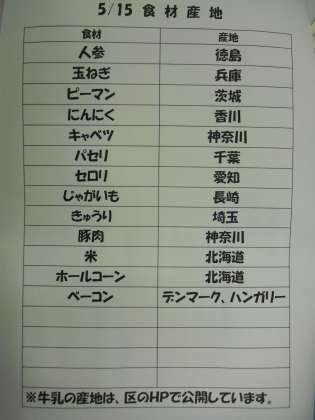 5/15 食材産地
食材 産地
人参 徳島
玉ねぎ 兵庫
ピーマン 茨城
にんにく 香川
キャベツ 神奈川
パセリ 千葉
セロリ 愛知
じゃがいも 長崎
きゅうり 埼玉
豚肉 神奈川
米 北海道
ホールコーン 北海道
ベーコン デンマーク、ハンガリー
※牛乳の産地は、区のHPで公開しています。